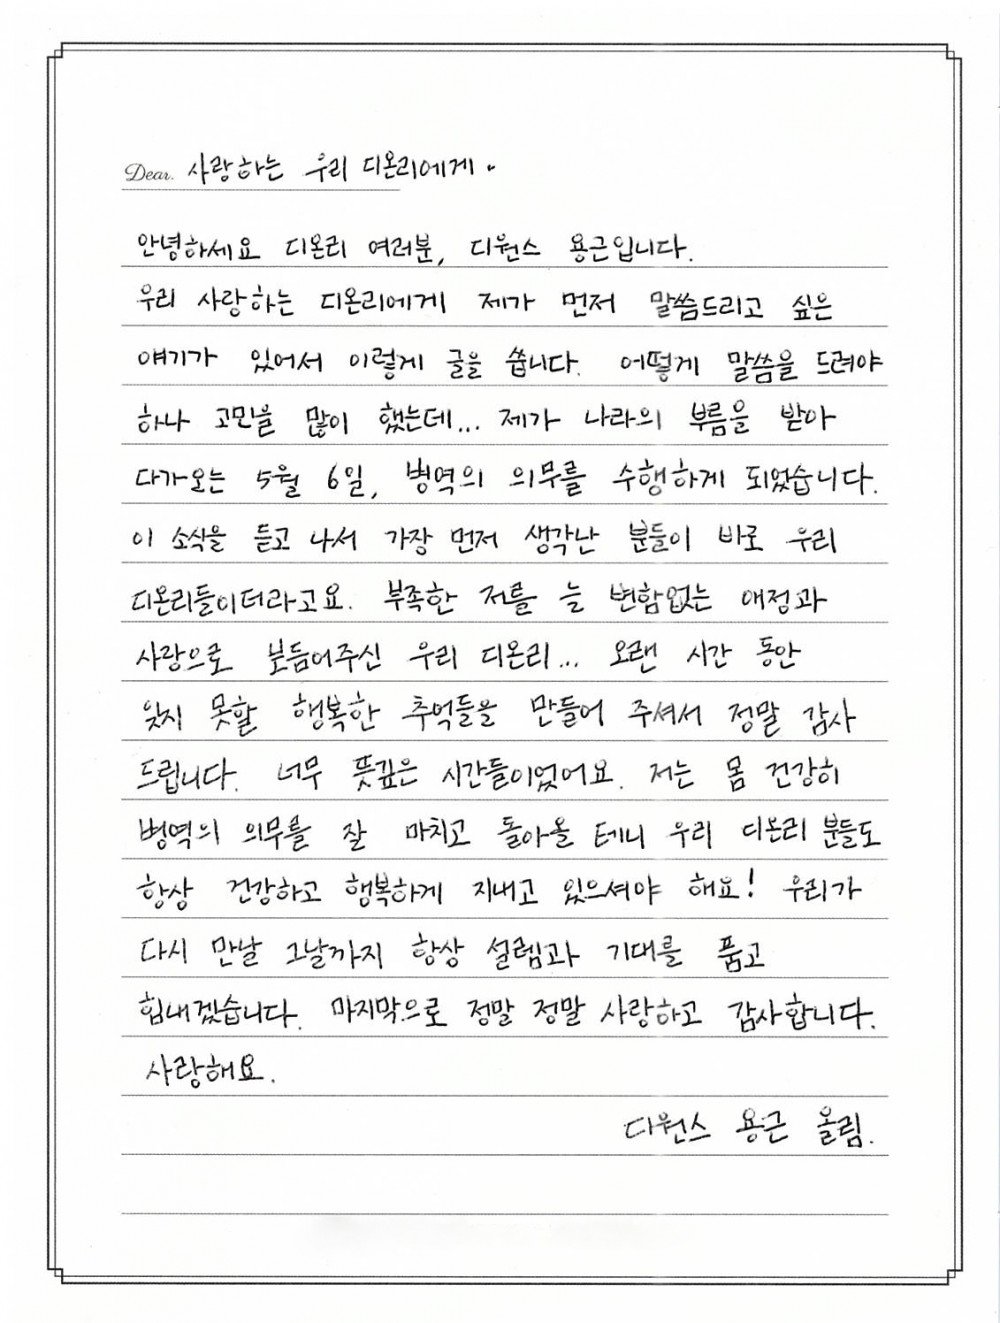 Dear. 사랑하는 우리 디온리에게.
안녕하세요 디온리 여러분, 디원스 용근입니다.
우리 사랑하는 디온리에게 제가 먼저 말씀드리고 싶은
얘기가 있어서 이렇게 글을 씁니다. 어떻게 말씀을 드려야
하나 고민을 많이 했는데... 제가 나라의 부름을 받아
다가오는 5월 6일, 병역의 의무를 수행하게 되었습니다.
이 소식을 듣고 나서 가장 먼저 생각난 분들이 바로 우리
디온리들이더라고요. 부족한 저를 늘 변함없는 애정과
사랑으로 보듬어주신 우리 디온리... 오랜 시간 동안
잊지 못할 행복한 추억들을 만들어 주셔서 정말 감사
드립니다. 너무 뜻깊은 시간들이었어요. 저는 몸 건강히
병역의 의무를 잘 마치고 돌아올 테니 우리 디온리 분들도
항상 건강하고 행복하게 지내고 있으셔야 해요! 우리가
다시 만날 그날까지 항상 설렘과 기대를 품고
힘내겠습니다. 마지막으로 정말 정말 사랑하고 감사합니다.
사랑해요.
디원스 용근 올림.